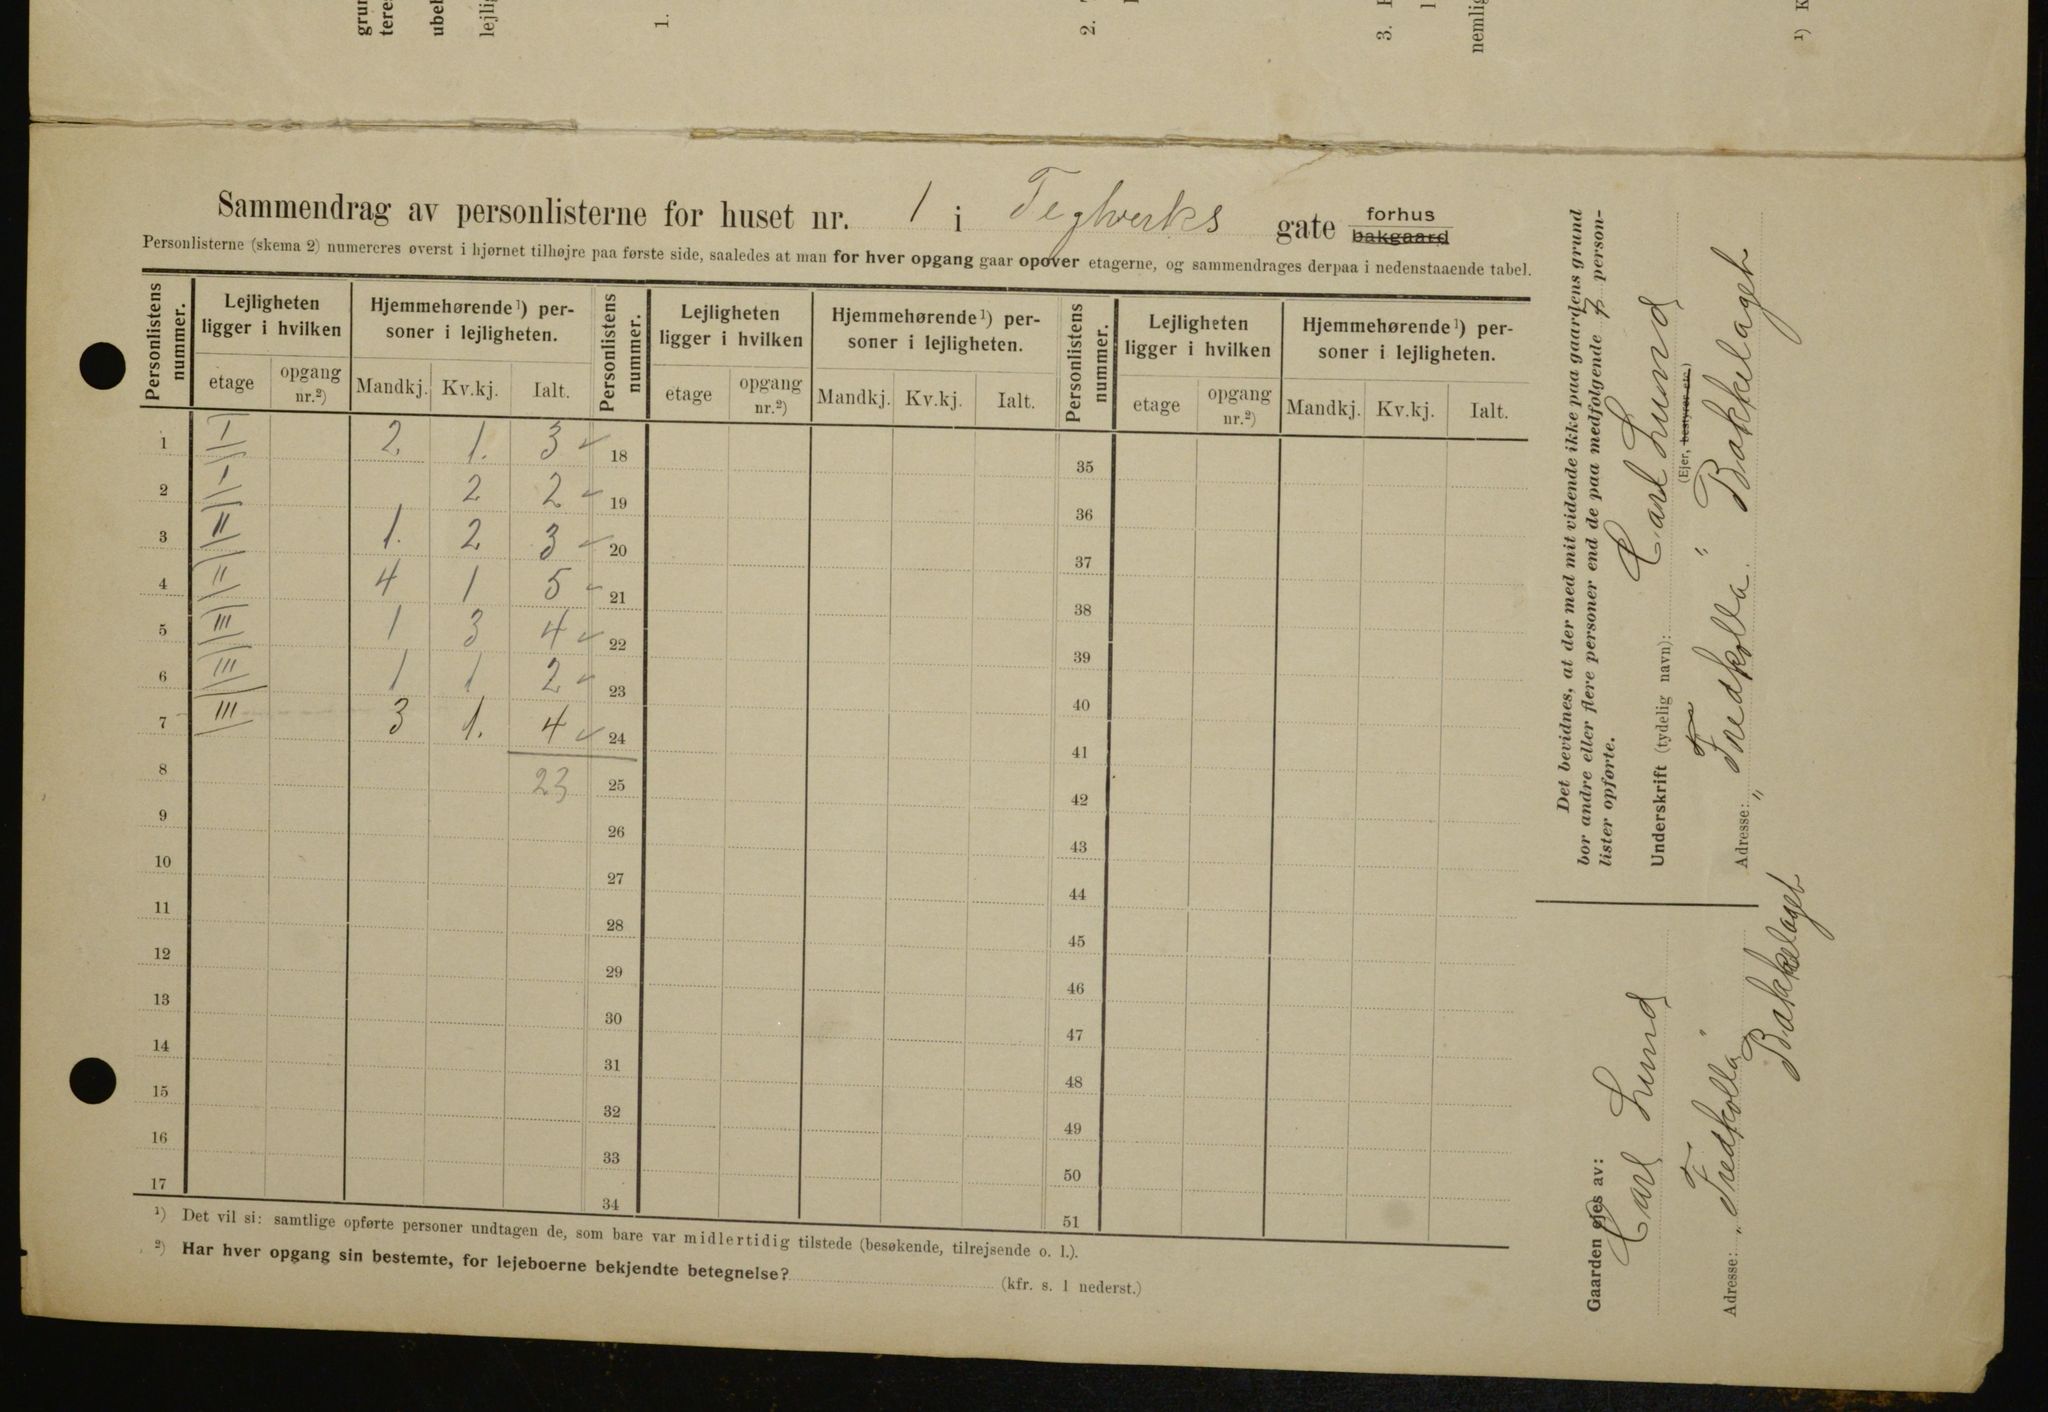 grun
teres
ubeb
lejlig
1.
2.
3.
nemlig
¹) K
Sammendrag av personlisterne for huset nr. 1 i Teglverks gate forhus
bakgaard
Personlisterne (skema 2) numereres øverst i hjørnet tilhøjre paa første side, saaledes at man for hver opgang gaar opover etagerne, og sammendrages derpaa i nedenstaaende tabel.
Personlistens nummer. Lejligheten ligger i hvilken Hjemmehørende¹) personer i lejligheten. Personlistens nummer. Lejligheten ligger i hvilken Hjemmehørende¹) personer i lejligheten. Personlistens nummer. Lejligheten ligger i hvilken Hjemmehørende¹) personer i lejligheten.
etage opgang nr.²) Mandkj. Kv.kj. Ialt. etage opgang nr.²) Mandkj. Kv.kj. Ialt. etage opgang nr.²) Mandkj. Kv.kj. Ialt.
1 I 2. 1. 3 18 35
2 I 2 2 19 36
3 II 1. 2 3 20 37
4 II 4 1 5 21 38
5 III 1 3 4 22 39
6 III 1 1 2 23 40
7 III 3 1. 4 24 41
8 23 25 42
9 26 43
10 27 44
11 28 45
12 29 46
13 30 47
14 31 48
15 32 49
16 33 50
17 34 51
¹) Det vil si: samtlige opførte personer undtagen de, som bare var midlertidig tilstede (besøkende, tilrejsende o. l.).
²) Har hver opgang sin bestemte, for lejeboerne bekjendte betegnelse? (kfr. s. 1 nederst.)
Det bevidnes, at der med mit vidende ikke paa gaardens grund
bor andre eller flere personer end de paa medfølgende 7 person-
lister opførte.
Underskrift (tydelig navn): Carl Lund
(Ejer, bestyrer etc.)
Adresse: „Fredkolla" Bakkelaget
Gaarden ejes av:
Carl Lund
Adresse: „Fredkolla"
Bakkelaget